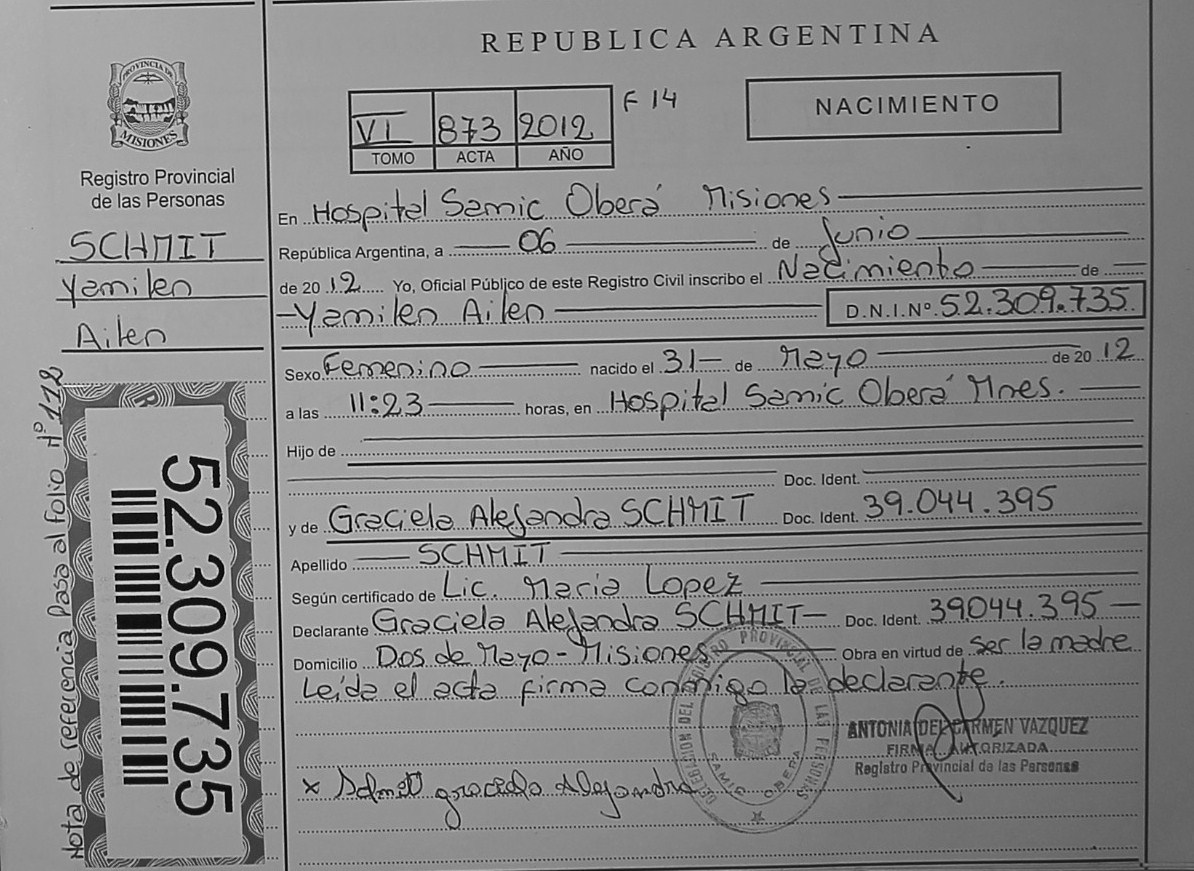 REPUBLICA ARGENTINA
PROVINCIA DE
MISIONES
Registro Provincial
de las Personas
SCHMIT
Yamilen
Ailen
VI 873 2012 F 14
TOMO ACTA AÑO
NACIMIENTO
En Hospital Samic Oberá Misiones
República Argentina, a 06 de Junio
de 2012 Yo, Oficial Público de este Registro Civil inscribo el Nacimiento de
Yamilen Ailen D.N.I.Nº 52.309.735
Sexo Femenino nacido el 31 de Mayo de 2012
a las 11:23 horas, en Hospital Samic Oberá Mnes.
Hijo de
Doc. Ident.
y de Graciela Alejandra SCHMIT Doc. Ident. 39.044.395
Apellido SCHMIT
Según certificado de Lic. Maria Lopez
Declarante Graciela Alejandra SCHMIT Doc. Ident. 39044.395
Domicilio Dos de Mayo - Misiones Obra en virtud de ser la madre
Leída el acta firma conmigo la declarante.
ANTONIA DEL CARMEN VAZQUEZ
FIRMA AUTORIZADA
Registro Provincial de las Personas
DELEGACION DEL REGISTRO PROVINCIAL DE LAS PERSONAS
SAMIC OBERA
x Schmit graciela Alejandra
Nota de referencia Pasa al folio Nº 118
52.309.735